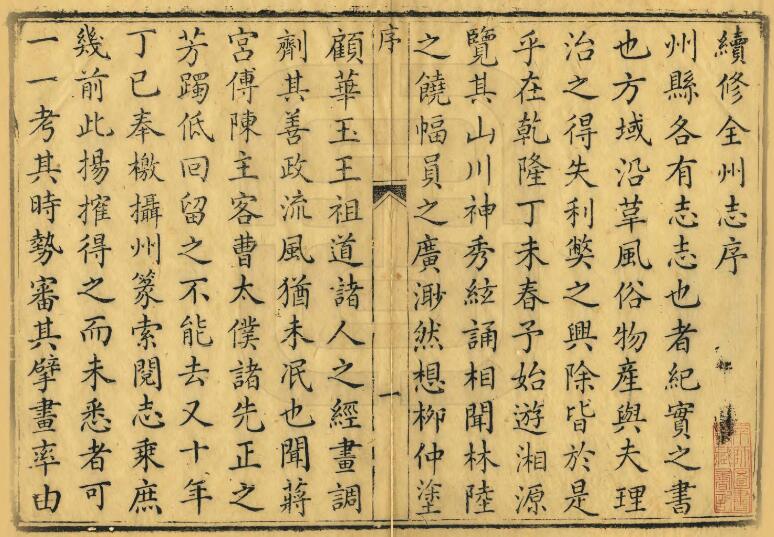 續修全州志序
州縣各有志志也者紀實之書
也方域沿革風俗物產與夫理
治之得失利獘之興除皆於是
乎在乾隆丁未春予始遊湘源
覽其山川神秀絃誦相聞林陸
之饒幅員之廣渺然想柳仲塗
序
一
顧華玉王祖道諸人之經畫調
劑其善政流風猶未泯也聞蔣
宮傅陳主客曹太僕諸先正之
芳躅低回留之不能去又十年
丁巳奉檄攝州篆索閱志乘庶
幾前此揚搉得之而未悉者可
一一考其時勢審其擘畫率由